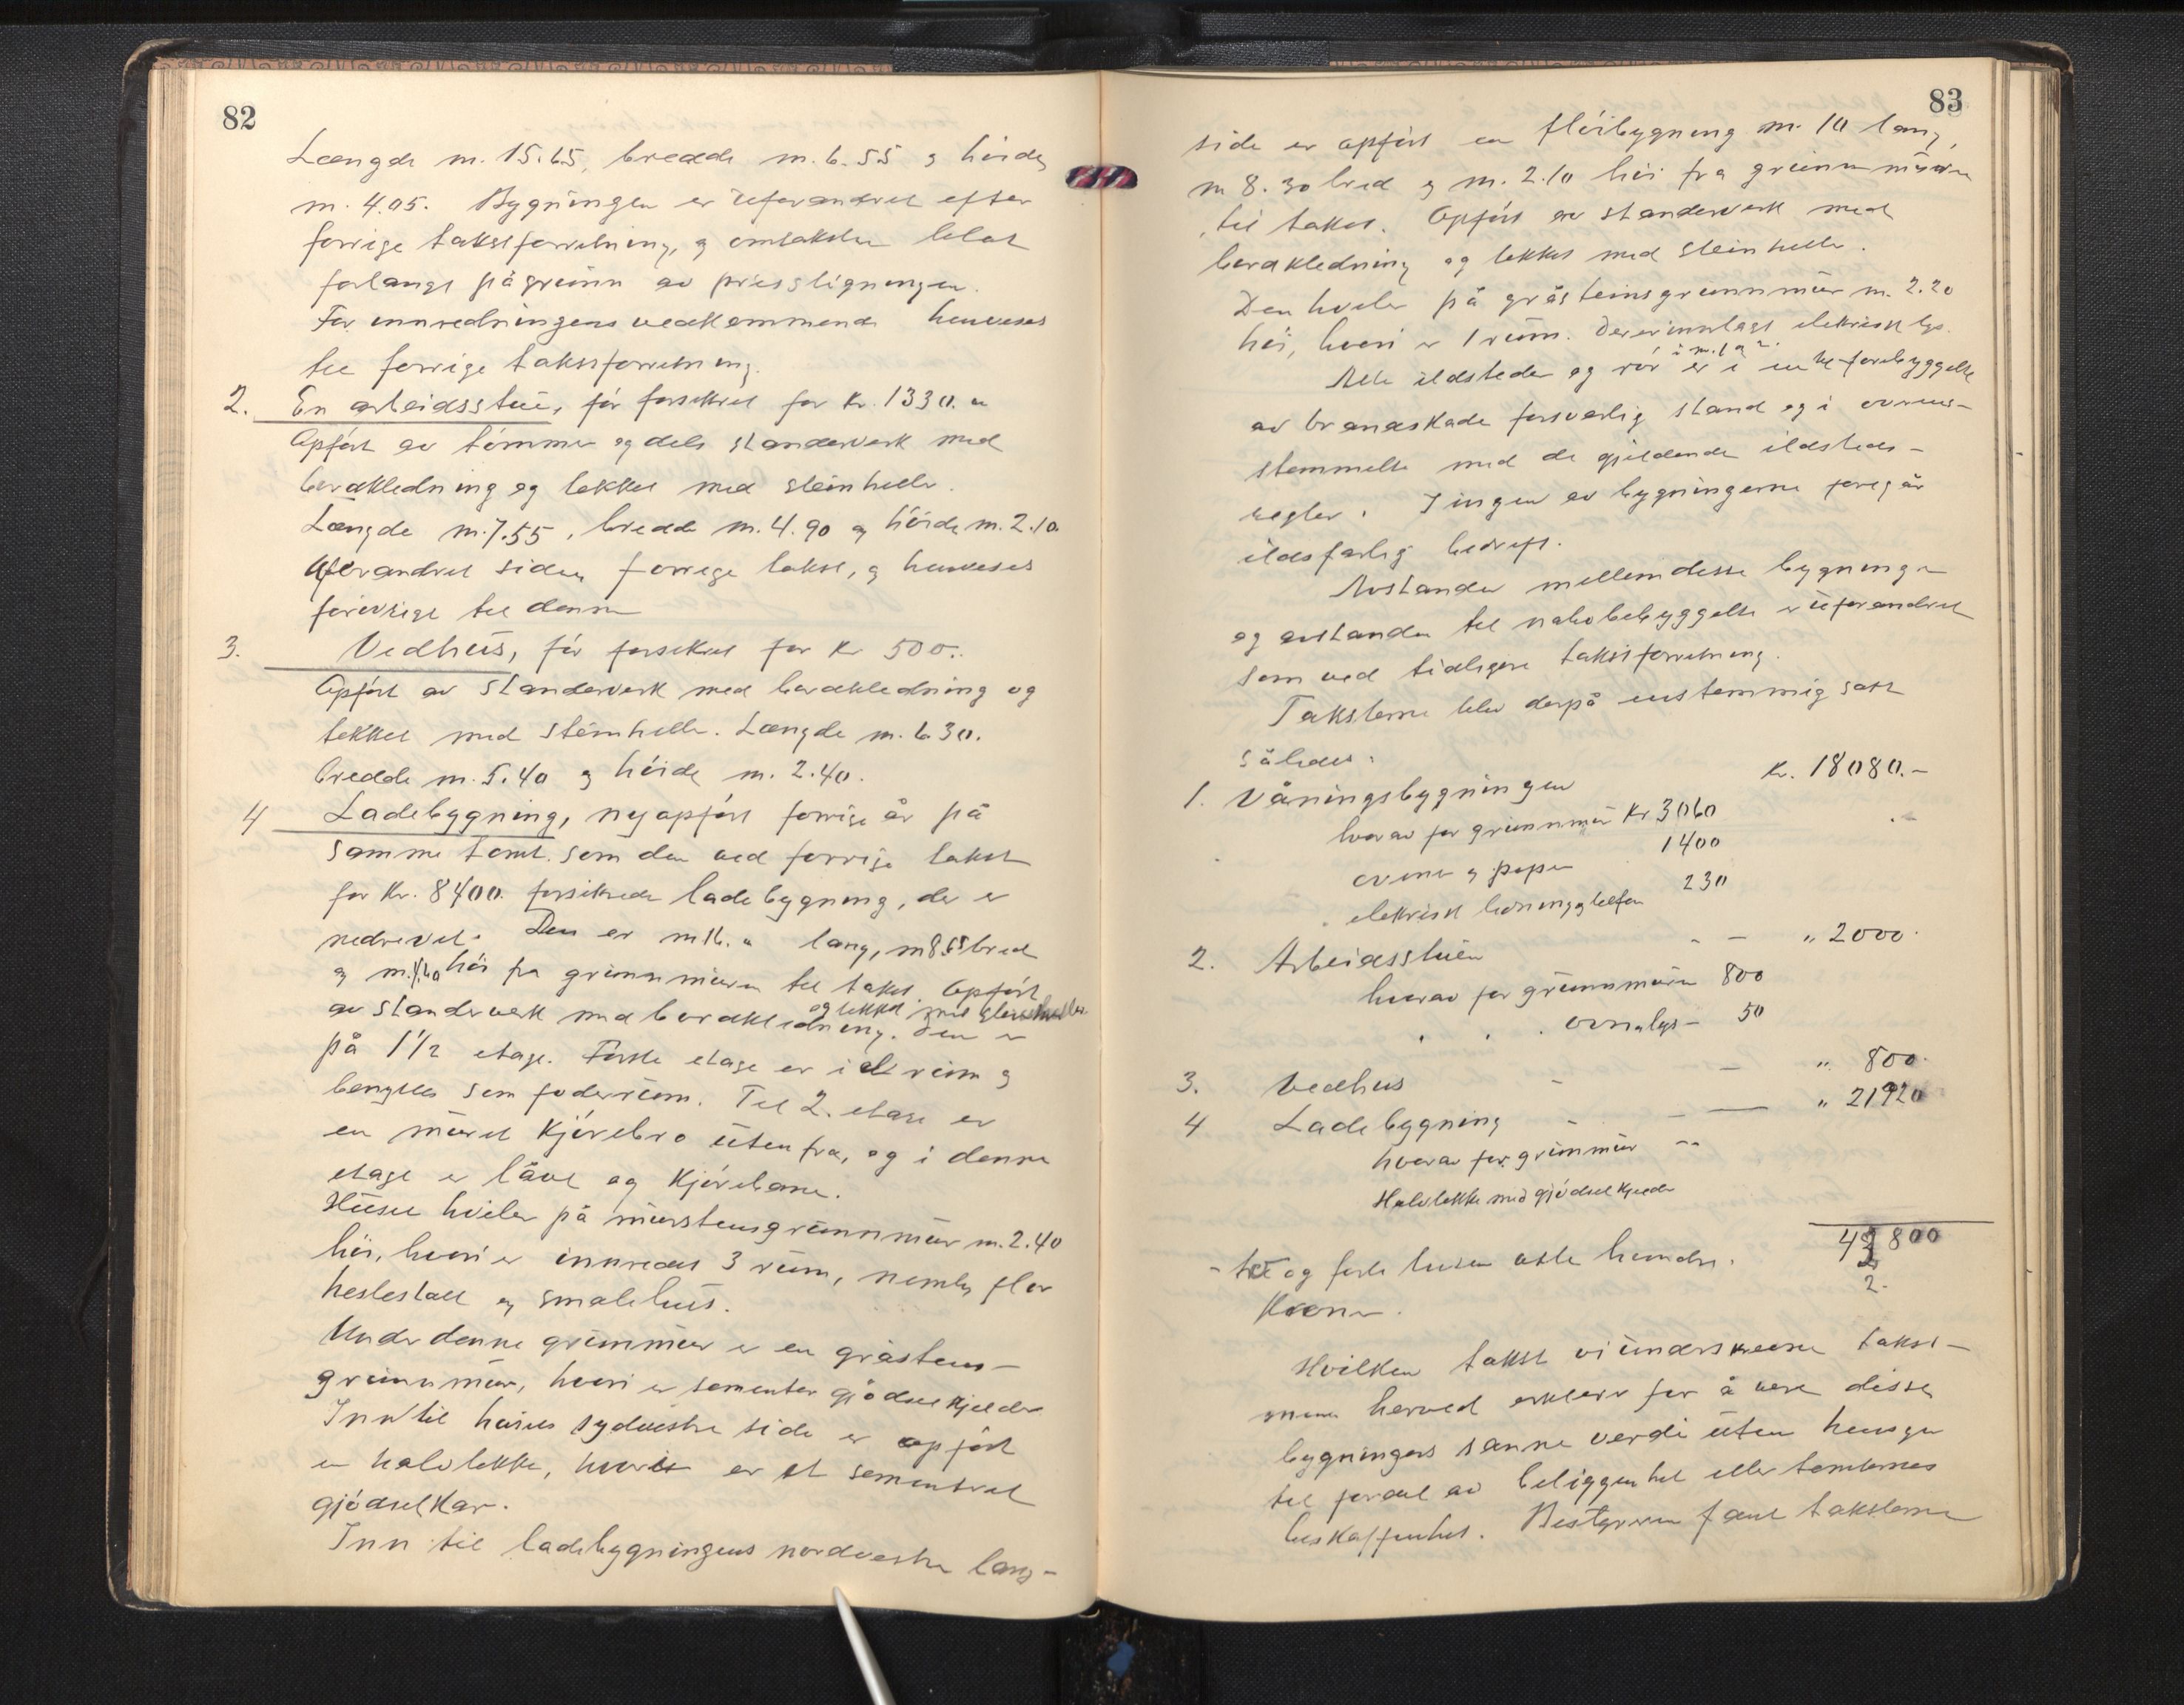 82
Længde m. 15.65, bredde m. 6.55 og höide
m. 4.05. Bygningen er uforandret efter
forrige takstforretning, og omtaksten blot
forlangt på grunn av prisstigningen.
For innredningens vedkommende henvises
til forrige takstforretning.
2. En arbeidsstue, för forsikret for Kr. 1330.
Opfört av tömmer og dels standerverk med
bordkledning og tekket med steinheller.
Længde m. 7.55, bredde m. 4.90 og höide m. 2.10.
Uforandret siden forrige takst, og henvises
forövrigt til denne
3. Vedhus, för forsikret for Kr 500.
Opfört av standerverk med bordkledning og
tekket med steinheller. Længde m. 6.30.
bredde m. 5.40 og höide m. 2.40.
4 Ladebygning, nyopfört forrige år på
samme tomt som den ved forrige takst
for Kr. 8400. forsikrede ladebygning, der er
nedrevet. Den er m 16. lang, m 8.65 bred
og m. höi fra grunnmuren til taket. Opfört
av standerverk med bordkledning. og tekket med Den er
på 1 1/2 etage. Förste etage er i et rum og
benyttes som foderrum. Til 2. etage er
en muret Kjörebro utenfra, og i denne
etage er låve og Kjörebane.
Huset hviler på murstensgrunnmur m. 2.40
höi, hvori er innredet 3 rum, nemlig flor
hestestall og smalehus.
Under denne grunnmur er en gråstens-
grunnmur, hvori er sementer gjödselkjelder
Inn til husets sydvestre side er opfört
en halvtekke, hvori er et sementret
gjödselkar.
Inn til ladebygningens nordvestre lang-
83
side er opfört en flöibygning m. 10 lang,
m 8.30 bred og m. 2.10 höi fra grunnmuren
til taket. Opfört av standerverk med
bordkledning og tekket med steinheller.
Den hviler på gråsteinsgrunnmur m. 2.20
höi, hvori er 1 rum. Der er innlagt elektrisk lys
Alle ildsteder og rör er i en forebyggelse
av brandskade forsvarlig stand og i overens-
stemmelse med de gjeldende ildsteds-
regler. I ingen av bygningerne foregår
ildsfarlig bedrift.
Avstanden mellem disse bygninger
og avstanden til nabobebyggelse er uforandret
som ved tidligere takstforretning.
Taksterne blev derpå enstemmig satt
således:
1. Våningsbygningen Kr. 18080.-
hvorav for grunnmur Kr 3060
ovner og piper 1400
elektrisk ledning og telefon 230
2. Arbeidsstuen - - " 2000.
hvorav for grunnmuren 800
" " ovn og lys - 50
3. Vedhus - - " 800.
4 Ladebygning - - — " 21920
hvorav for grunnmur --
Halvtekke med gjödselkjelder
42800
2.
- to og förti tusen åtte hundre.
Kroner.
Hvilken takst vi underskrevne takst-
menn herved erklærer for å være disse
bygningers sanne verdi uten hensyn
til fordel av beliggenhet eller tomternes
beskaffenhet. Bestyreren fant taksterne